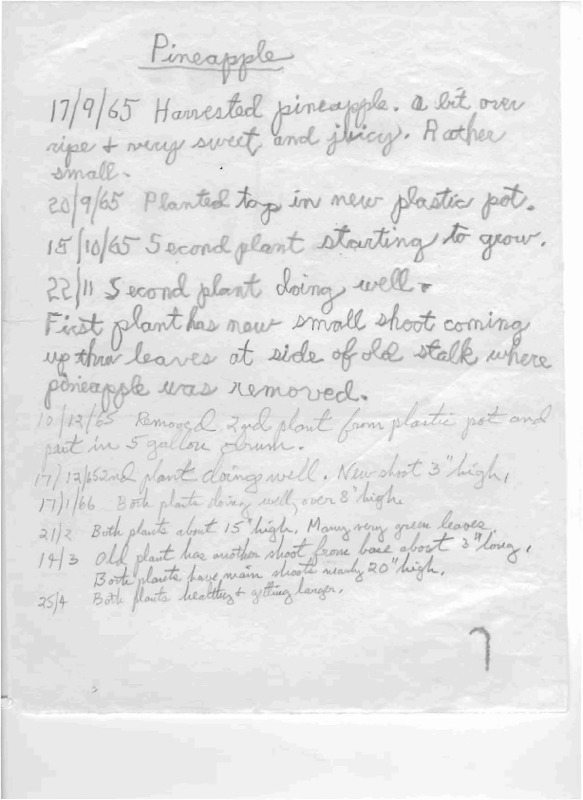 Pineapple
17/9/65 Harvested pineapple. A bit over
ripe + very sweet and juicy. Rather
small.
20/9/65 Planted top in new plastic pot.
15/10/65 Second plant starting to grow.
22/11 Second plant doing well.
First plant has new small shoot coming
up thru leaves at side of old stalk where
pineapple was removed.
10/12/65 Removed 2nd plant from plastic pot and
put in 5 gallon drum.
17/12/65 2nd plant doing well. New shoot 3" high.
17/1/66 Both plants doing well, over 8" high.
21/2 Both plants about 15" high. Many very green leaves.
14/3 Old plant has another shoot from base about 3" long.
Both plants have main shoots nearly 20" high.
25/4 Both plants healthy + getting larger.
7